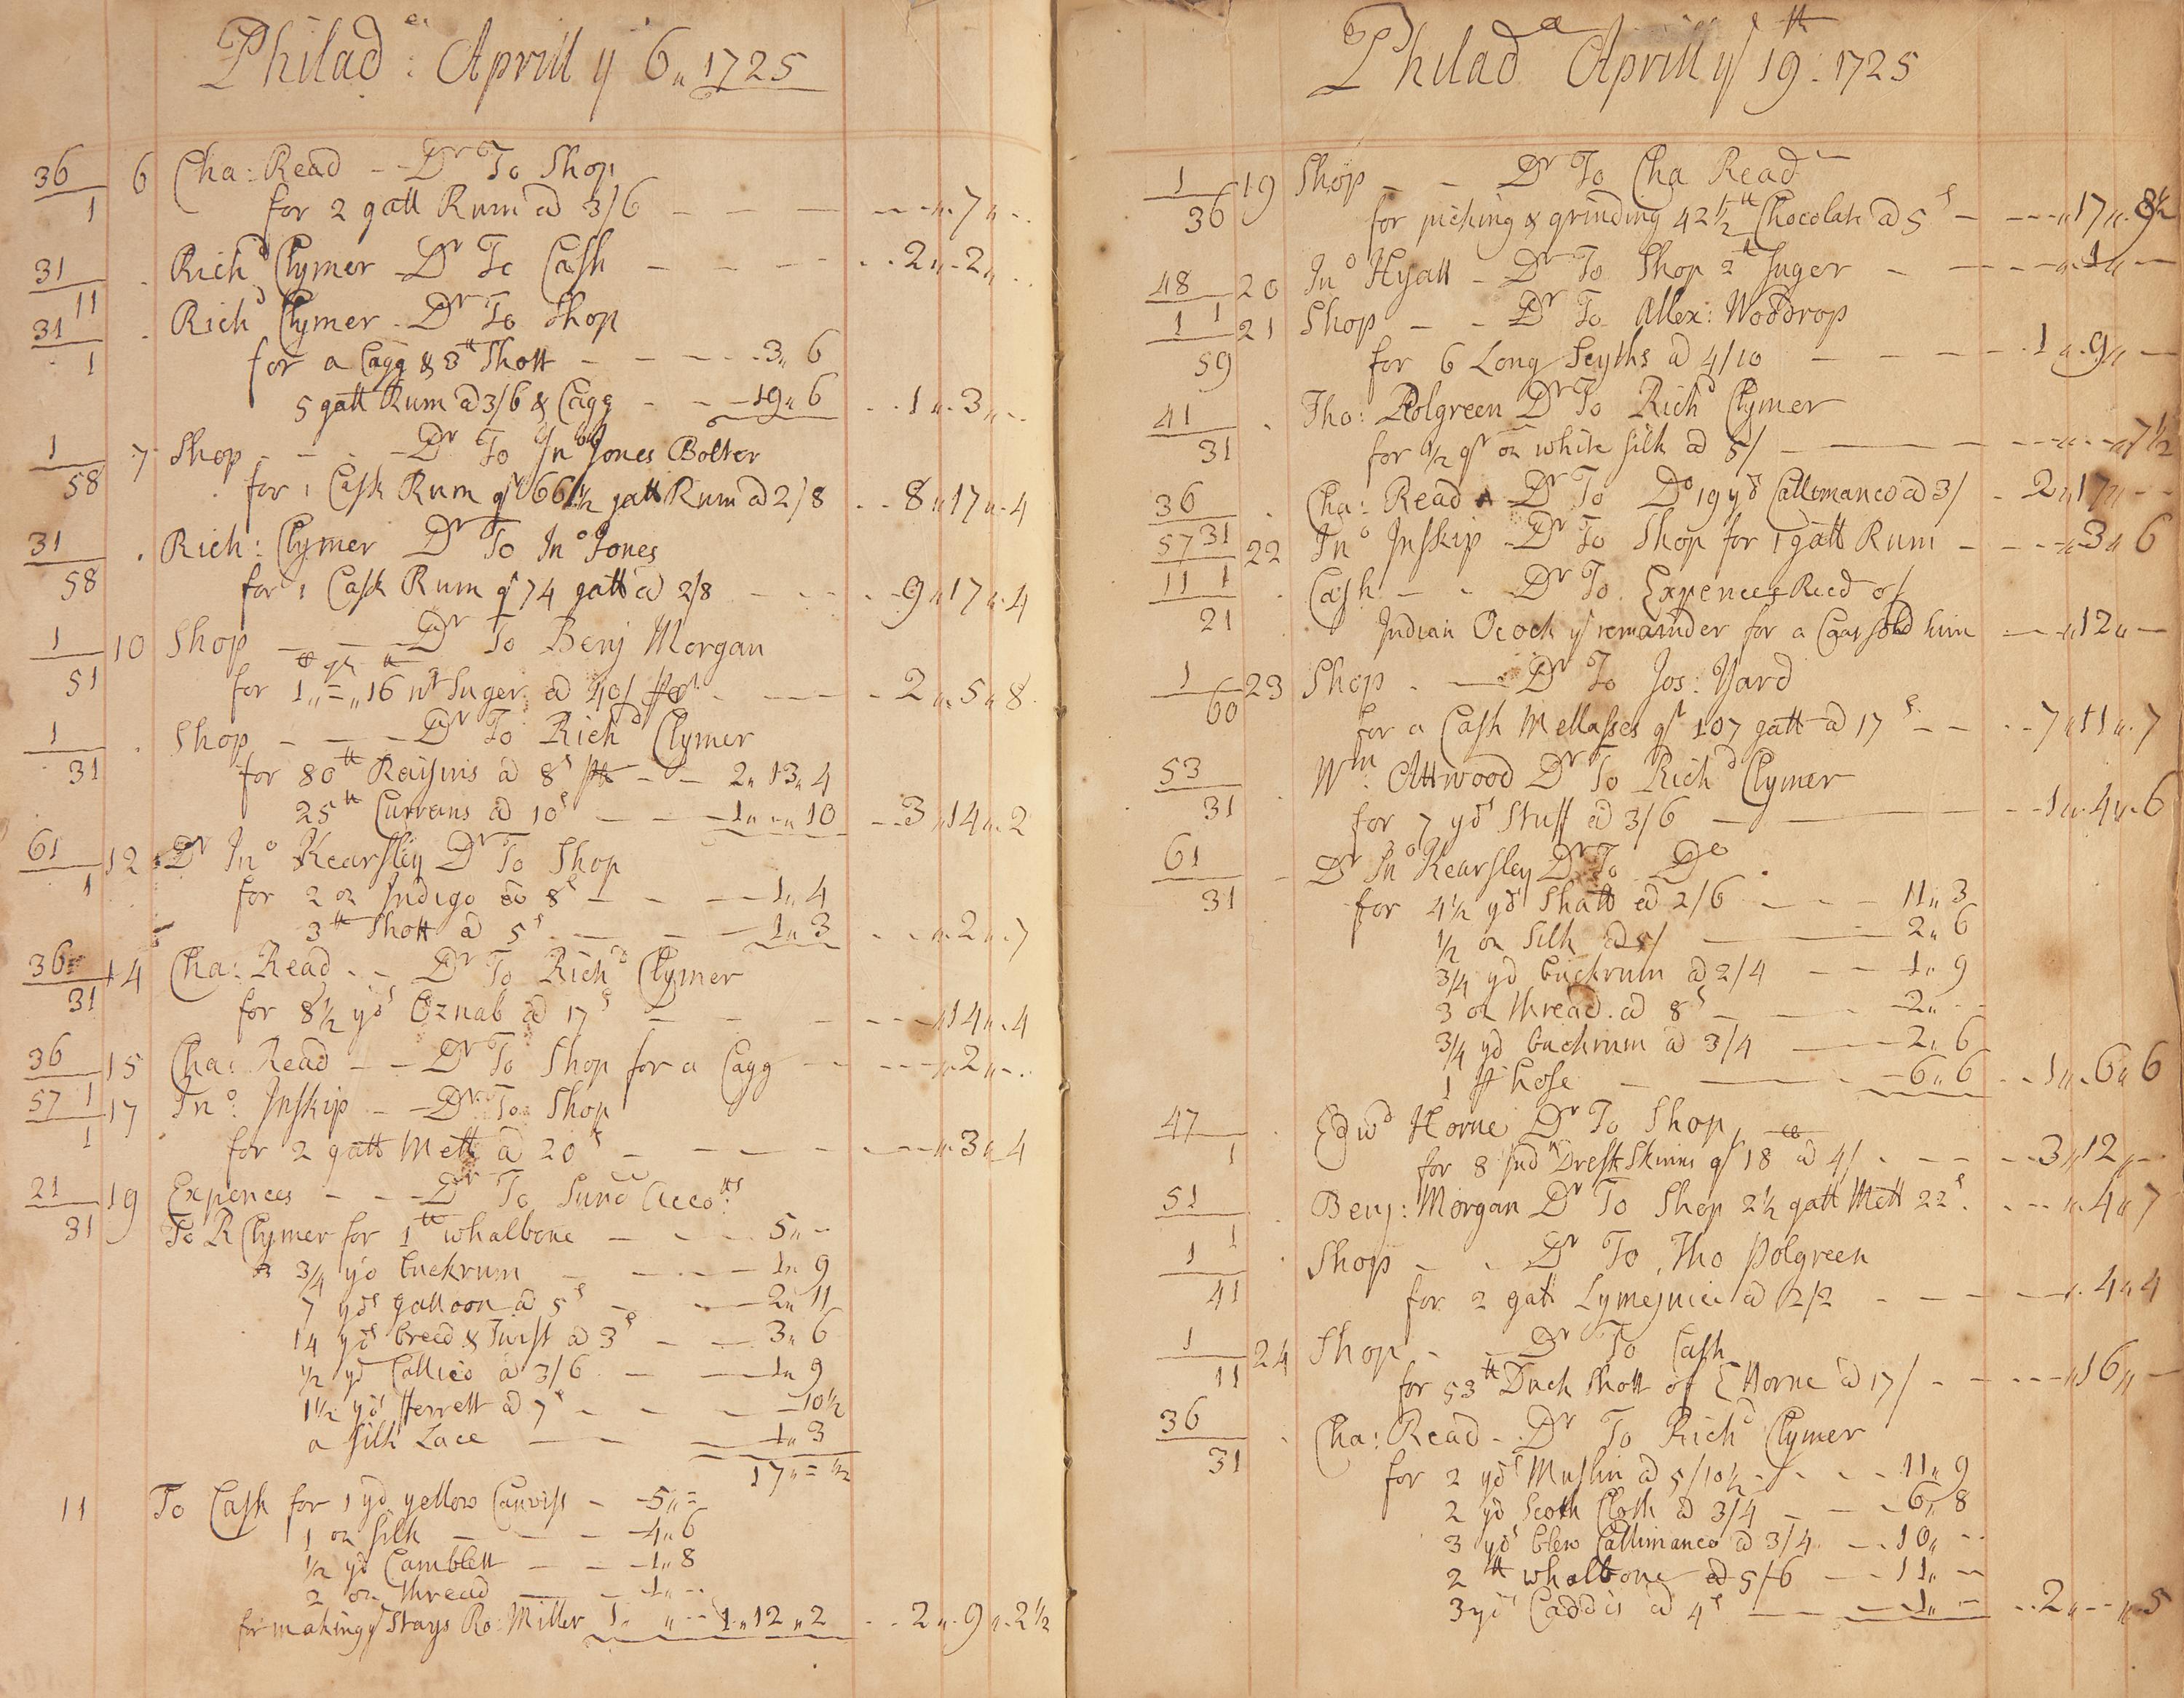 Philad.a Aprill ye 6„ 1725
36/1 6 Cha: Read - - Dr To Shop
for 2 gall Rum @ 3/6 - - - - „ 7 „ -
31/11 . Richd Clymer - Dr To Cash - - - - 2 „ 2 „ -
31/1 . Richd Clymer - Dr To Shop
for a Cagg & 8 ℔ Shott - - - - 3„ 6
5 gall Rum @ 3/6 & Cagg - - 19„ 6 - - 1 „ 3 „ -
1/58 7 Shop - - - - Dr To Jno Jones Bolter
for 1 Cask Rum qt 66 1/2 gall Rum @ 2/8 - - 8 „ 17 „ 4
31/58 . Rich: Clymer Dr To Jno Jones
for 1 Cask Rum qt 74 gall @ 2/8 - - - - 9 „ 17 „ 4
1/51 10 Shop - - - Dr To Benj Morgan
for 1 „ = „ 16 nt Suger @ 40/ - - - - 2 „ 5 „ 8
1/31 . Shop - - - Dr To Richd Clymer
for 80 ℔ Raisins @ 8d ℔ - - 2„ 13„ 4
25 ℔ Currans @ 10d - - 1„ - „ 10 - - 3 „ 14 „ 2
61/1 12 Dr Jno Kearsley Dr To Shop
for 2 oz Indigo @ 8d - - - 1„ 4
3 ℔ Shott @ 5d - - - 1„ 3 - - „ 2 „ 7
36/31 14 Cha: Read - - Dr To Richd Clymer
for 8 1/2 yds Oznab @ 17d - - - - „ 14 „ 4
36/1 15 Cha: Read - - Dr To Shop for a Cagg - - - „ 2 „ -
57/1 17 Jno: Inskip - - Dr To Shop
for 2 gall Mell @ 20d - - - - „ 3 „ 4
21/31 19 Expences - - - Dr To Sund Accotts
To R Clymer for 1 ℔ whalbone - - - 5„ -
3/4 yd buckrum - - - 1„ 9
7 yds galloon @ 5d - - 2„ 11
14 yds breed & Twist @ 3d - - 3„ 6
1/2 yd Callico @ 3/6 - - 1„ 9
1 1/2 yds fferrett @ 7d - - - 10 1/2
a Silk Lace - - 1„ 3
17 „ = 1/2
11 To Cash for 1 yd yellow Canviss - 5„ =
1 oz Silk - - - 4„ 6
1/2 yd Camblett - - 1„ 8
2 oz thread - - 1„ -
for making ye Stays Ro: Miller 1„ „ - - 1„ 12 „ 2 - - 2 „ 9 „ 2 1/2
Philada Aprill ye 19th: 1725
1/36 19 Shop - - Dr To Cha Read
for picking & grinding 42 1/2 ℔ Chocolate @ 5d - - - „ 17 „ 8 1/2
48/1 20 Jno Hyatt - Dr To Shop 2 ℔ Suger - - - „ 1 „ -
1/59 21 Shop - - Dr To Allex: Woddrop
for 6 Long Scyths @ 4/10 - - - - 1 „ 9 „ -
41/31 . Tho: Polgreen Dr To Richd Clymer
for 1/2 qr oz white Silk @ 5/ - - - - „ - „ 7 1/2
36/31 . Cha: Read - Dr To Do 19 yds Callimanco @ 3/ - 2 „ 17 „ -
57/1 22 Jno Inskip - Dr To Shop for 1 gall Rum - - - „ 3 „ 6
11/21 . Cash - - Dr To Expences Recd of
Indian Ocock ye remainder for a Coat sold him - - „ 12 „ -
1/60 23 Shop - - Dr To Jos: Yard
for a Cask Mellasses qt 107 gall @ 17d - - - 7 „ 11 „ 7
53/31 . Wm: Attwood Dr To Richd Clymer
for 7 yds Stuff @ 3/6 - - - - 1 „ 4 „ 6
61/31 - Dr Jno Kearsley Dr To Do
for 4 1/2 yds Shall @ 2/6 - - - 11„ 3
1/2 oz Silk @ 5/ - - 2„ 6
3/4 yd buckrum @ 2/4 - - 1„ 9
3 oz thread @ 8d - - 2„ -
3/4 yd buckrum @ 3/4 - - 2„ 6
1 pr hose - - 6„ 6 - - 1 „ 6 „ 6
47/1 . Edwd Horne Dr To Shop
for 8 Ind Drest Skinns qt 18 ℔ @ 4/ - - - - 3 „ 12 „ -
51/1 . Benj: Morgan Dr To Shop 2 1/2 gall Mell 22d - - - „ 4 „ 7
1/41 . Shop - - Dr To Tho Polgreen
for 2 gall Lymejuice @ 2/2 - - - - „ 4 „ 4
1/11 24 Shop - - Dr To Cash
for 53 ℔ Duck Shott of E Horne @ 17/ - - - - „ 16 „ -
36/31 . Cha: Read - Dr To Richd Clymer
for 2 yds Muslin @ 5/10 1/2 - - - 11„ 9
2 yd Scoth Cloth @ 3/4 - - 6„ 8
3 yds blew Callimanco @ 3/4 - - 10„ -
2 ℔ whalbone @ 5/6 - - 11„ -
3 yds Caddis @ 4d - - 1„ - - - 2 „ - „ 5